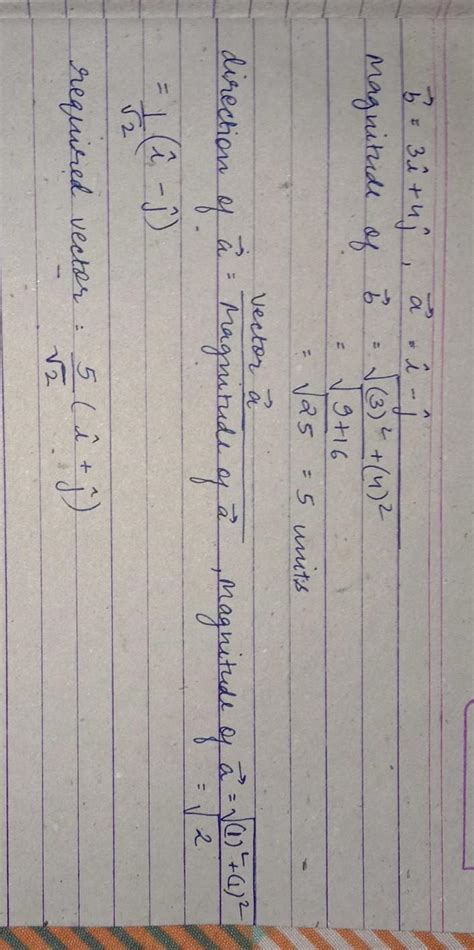 b⃗ = 3î + 4ĵ , a⃗ = î - ĵ
Magnitude of b⃗ = √(3)² + (4)²
= √9+16
= √25 = 5 units
direction of a⃗ = vector a⃗ / Magnitude of a⃗ , Magnitude of a⃗ = √(1)²+(1)²
= √2
= 1/√2 (î - ĵ)
required vector = 5/√2 (î + ĵ)